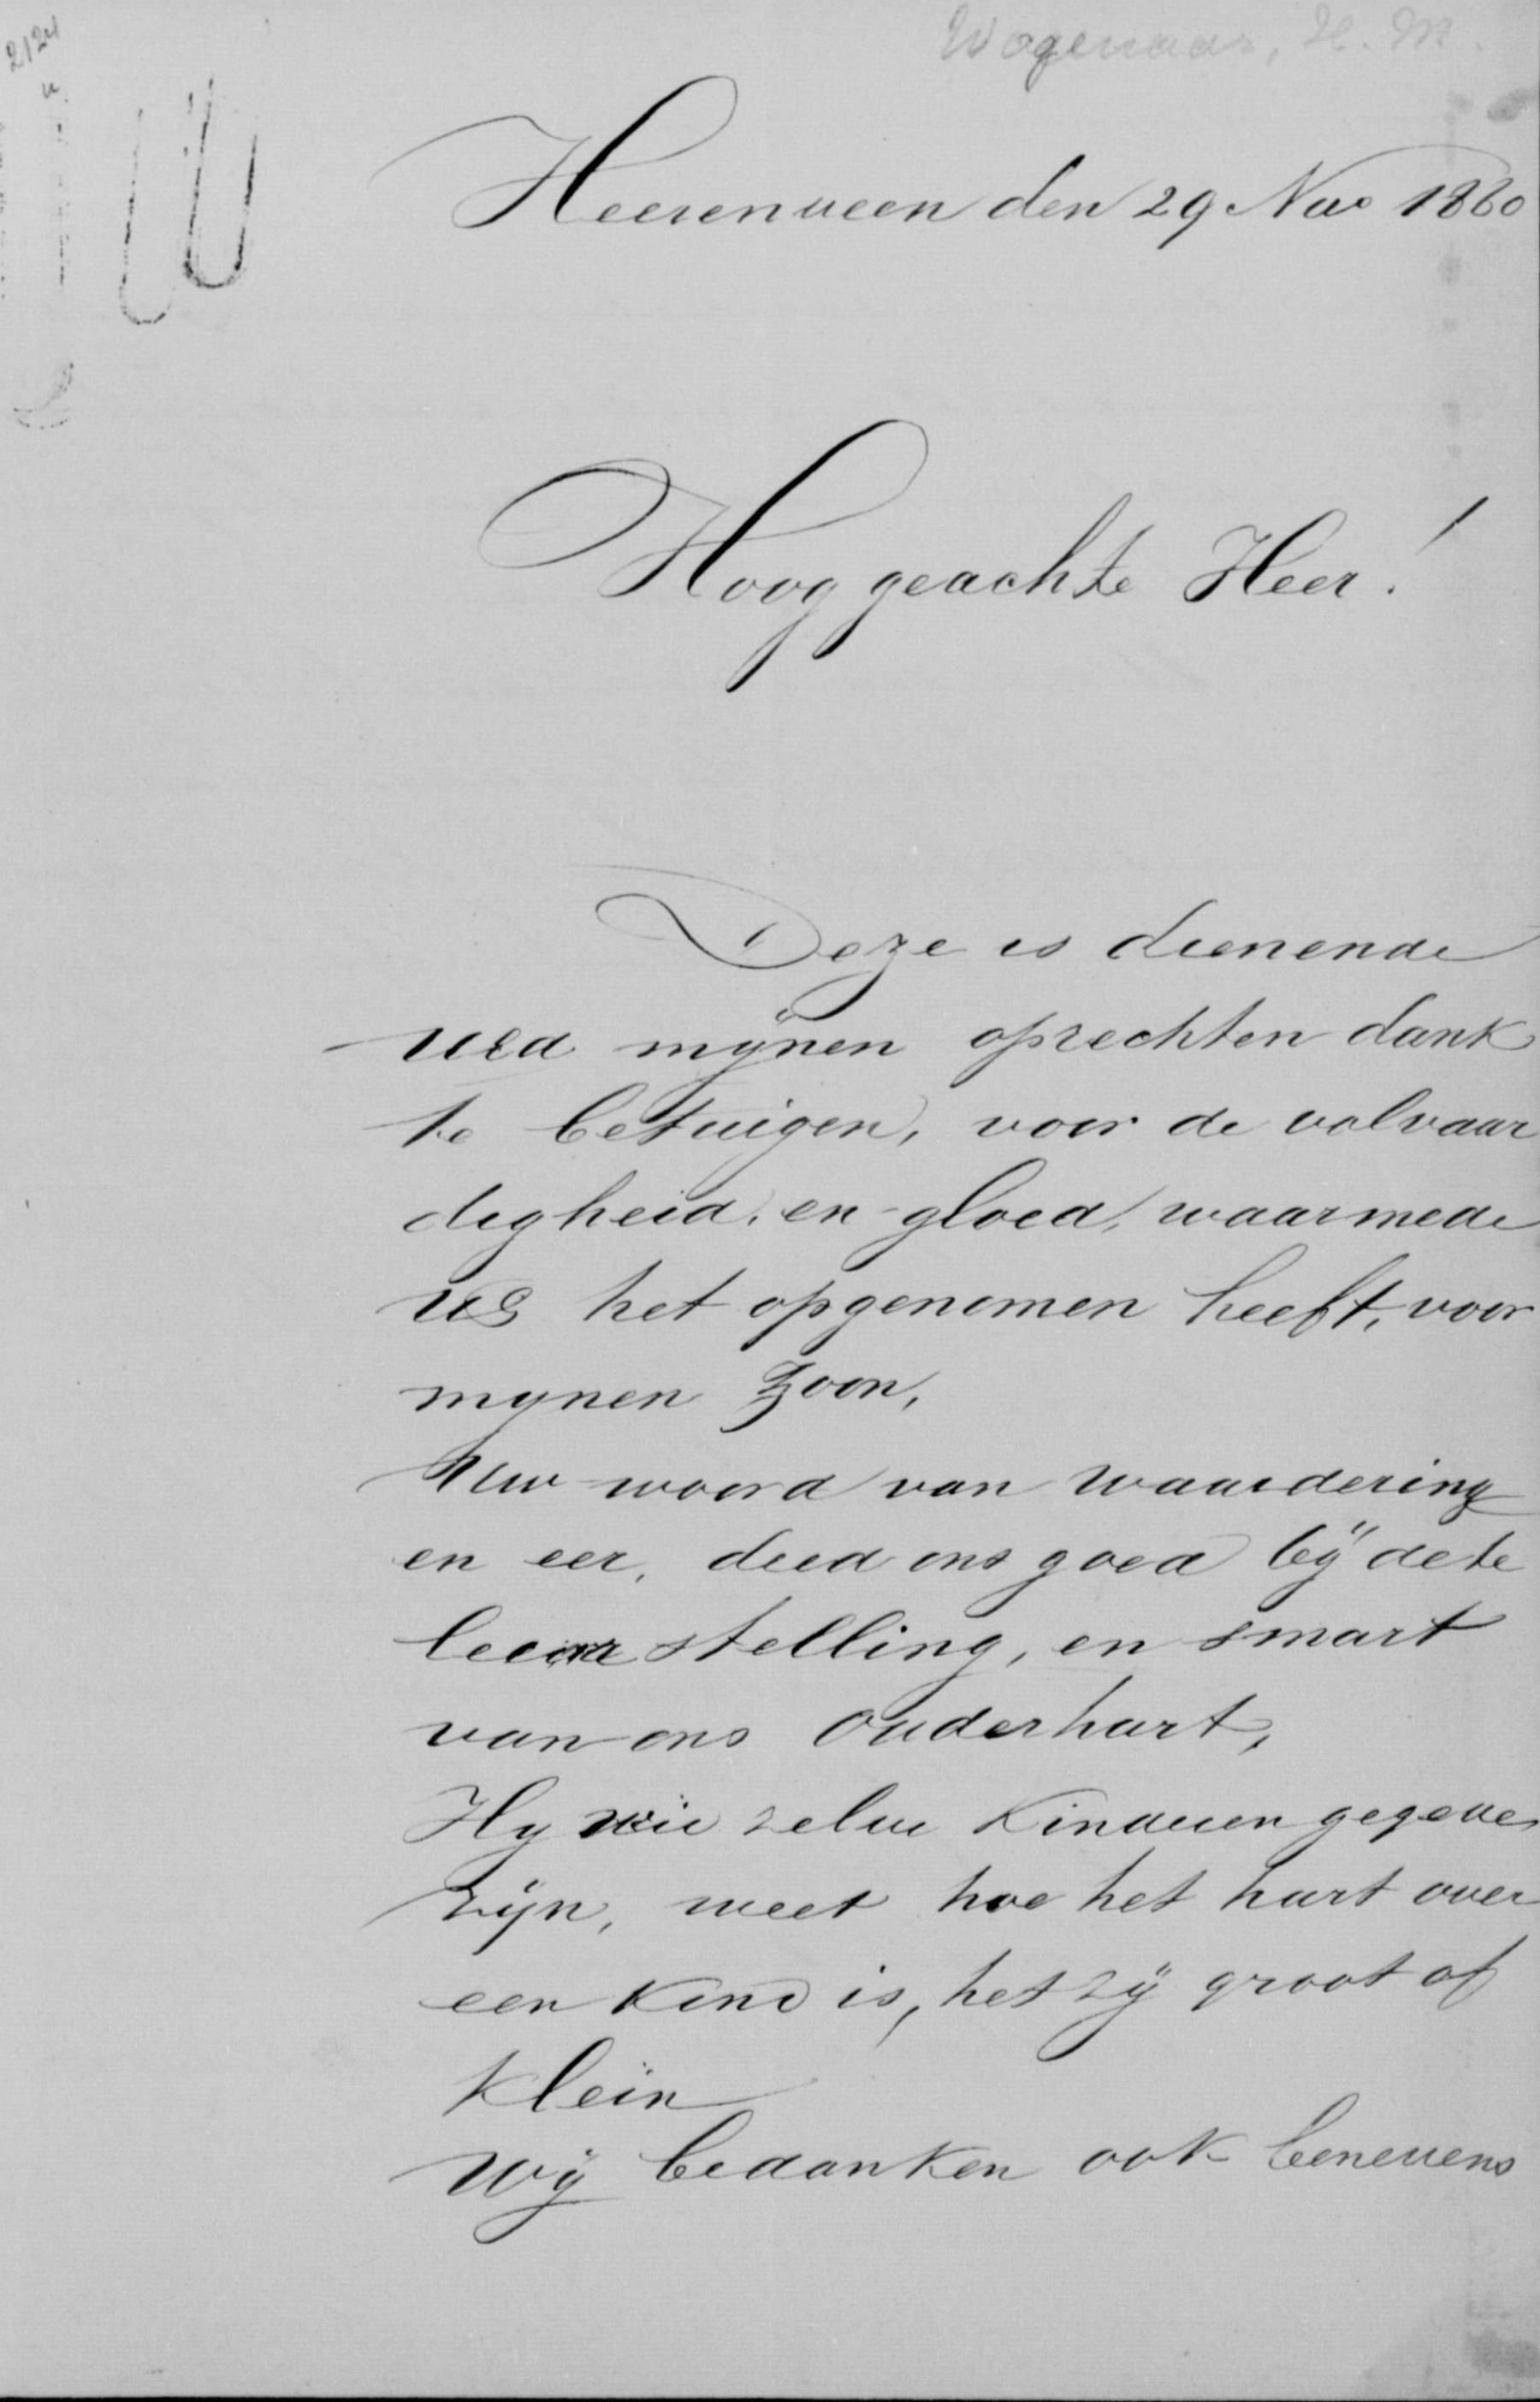 Wagenaar, H. M.
2124
Heerenveen den 29 Nov 1880
Hooggeachte Heer!
Deze is dienende
UEd mijnen oprechten dank
te betuigen, voor de volvaar
digheid, en gloed, waarmede
UE het opgenomen heeft, voor
mynen Zoon,
Uw woord van waardering
en eer, deed ons goed bij de te
leurstelling, en smart
van ons ouderhart,
Hy wie zelve Kinderen gegeven
zijn, weet hoe het hart over
een Kind is, het zij groot of
klein
Wij bedanken ook benevens